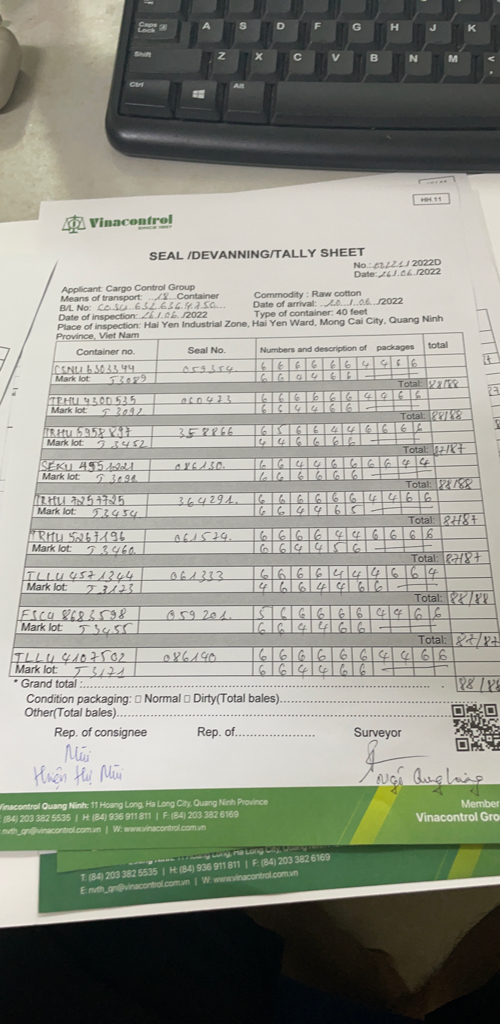 Caps Lock A S D F G H J K
Shift Z X C V B N M <
Ctrl Alt
HH 11
Vinacontrol
SINCE 1957
SEAL /DEVANNING/TALLY SHEET
No.: /2022D
Date: 26/.06./2022
Applicant: Cargo Control Group
Commodity : Raw cotton
Means of transport: ..18.. Container
Date of arrival: .20../.06../2022
B/L No: COSU 6326364750...
Type of container: 40 feet
Date of inspection: 26/.06../2022
Place of inspection: Hai Yen Industrial Zone, Hai Yen Ward, Mong Cai City, Quang Ninh
Province, Viet Nam
Container no. Seal No. Numbers and description of packages total
CSNU 6303544 059354 6 6 6 6 6 6 4 4 6 6
Mark lot: T3089 6 6 4 4 6 6
Total: 88/88
TRHU 4300535 060473 6 6 6 6 6 6 4 4 6 6
Mark lot: T3092 6 6 4 4 6 6
Total: 88/88
TRHU 5958897 358866 6 5 6 6 4 4 6 6 6 6
Mark lot: T3452 4 4 6 6 6 6
Total: 87/87
SEKU 4951221 086130. 6 6 4 4 6 6 6 6 4 4
Mark lot: T3091 6 6 6 6 6 6
Total: 88/88
TRHU 7257725 364291. 6 6 6 6 6 6 4 4 6 6
Mark lot: T3454 6 6 4 4 6 5
Total: 87/87
TRHU 5267196 061524. 6 6 6 6 4 4 6 6 6 6
Mark lot: T3460. 6 6 4 4 5 6
Total: 87/87
TLLU 4571244 061333 6 6 6 6 4 4 4 6 6 4
Mark lot: T3173 4 6 6 4 4 6 6
Total: 88/88
FSCU 8683598 059201. 5 6 6 6 6 6 4 4 6 6
Mark lot: T3455 6 6 4 4 6 6
Total: 87/87
TLLU 4107502 086140 6 6 6 6 6 6 4 4 6 6
Mark lot: T3171 6 6 4 4 6 6
* Grand total : 88/88
Condition packaging: □ Normal □ Dirty(Total bales)
Other(Total bales)
Rep. of consignee Rep. of Surveyor
Mùi
Thị Mùi Ngô Quang
Vinacontrol Quang Ninh: 11 Hoang Long, Ha Long City, Quang Ninh Province
(84) 203 382 5535 | H: (84) 936 911 811 | F: (84) 203 382 6169
nvth_qn@vinacontrol.com.vn | W: www.vinacontrol.com.vn
Member
Vinacontrol Gro
Long, Ha Long City, Quang Ninh Province
T: (84) 203 382 5535 | H: (84) 936 911 811 | F: (84) 203 382 6169
E: nvth_qn@vinacontrol.com.vn | W: www.vinacontrol.com.vn